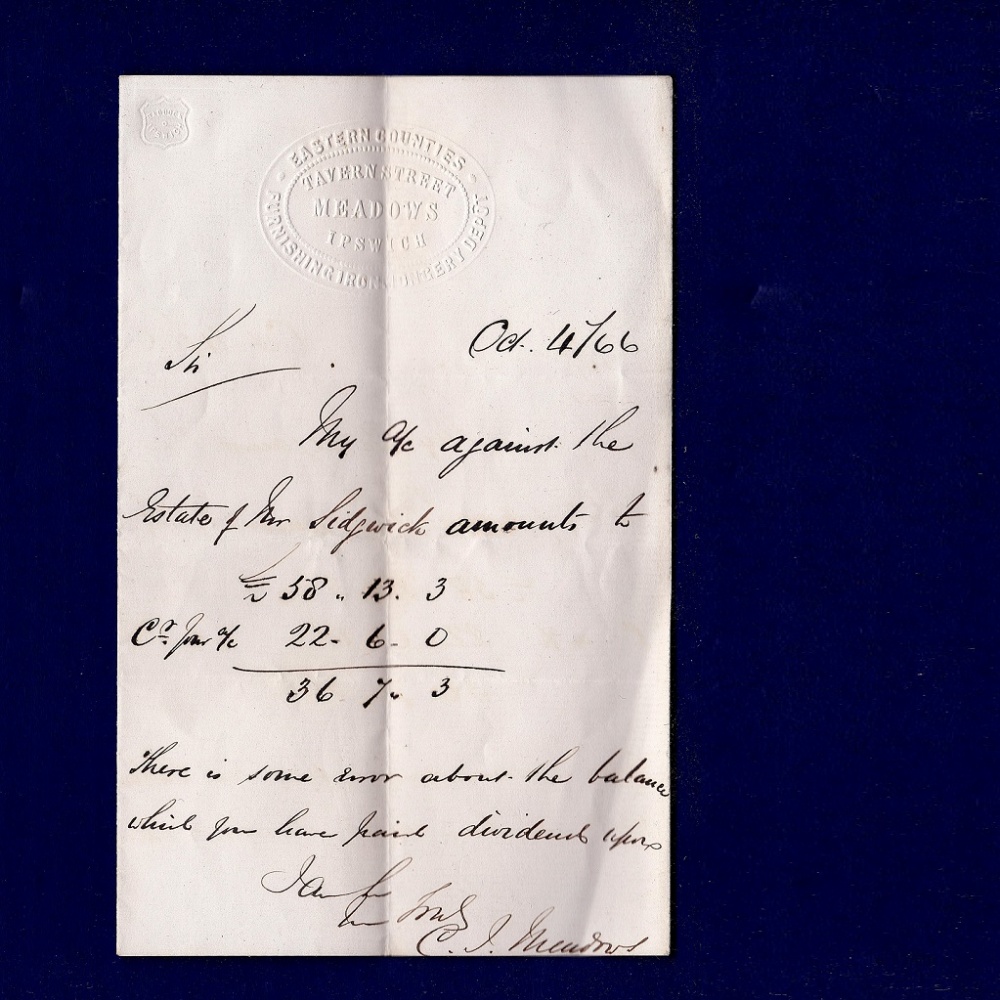 EASTERN COUNTIES
TAVERN STREET
MEADOWS
IPSWICH
FURNISHING IRONMONGERY DEPOT
Oct. 4/66
Sir
My a/c against the
Estate of Mr Sidgwick amounts to
£ 58 " 13. 3
Cr. your a/c 22 - 6 - 0
36 7 " 3
There is some error about the balance
which you have paid dividend upon
I am Sir
Truly
C. J. Meadows